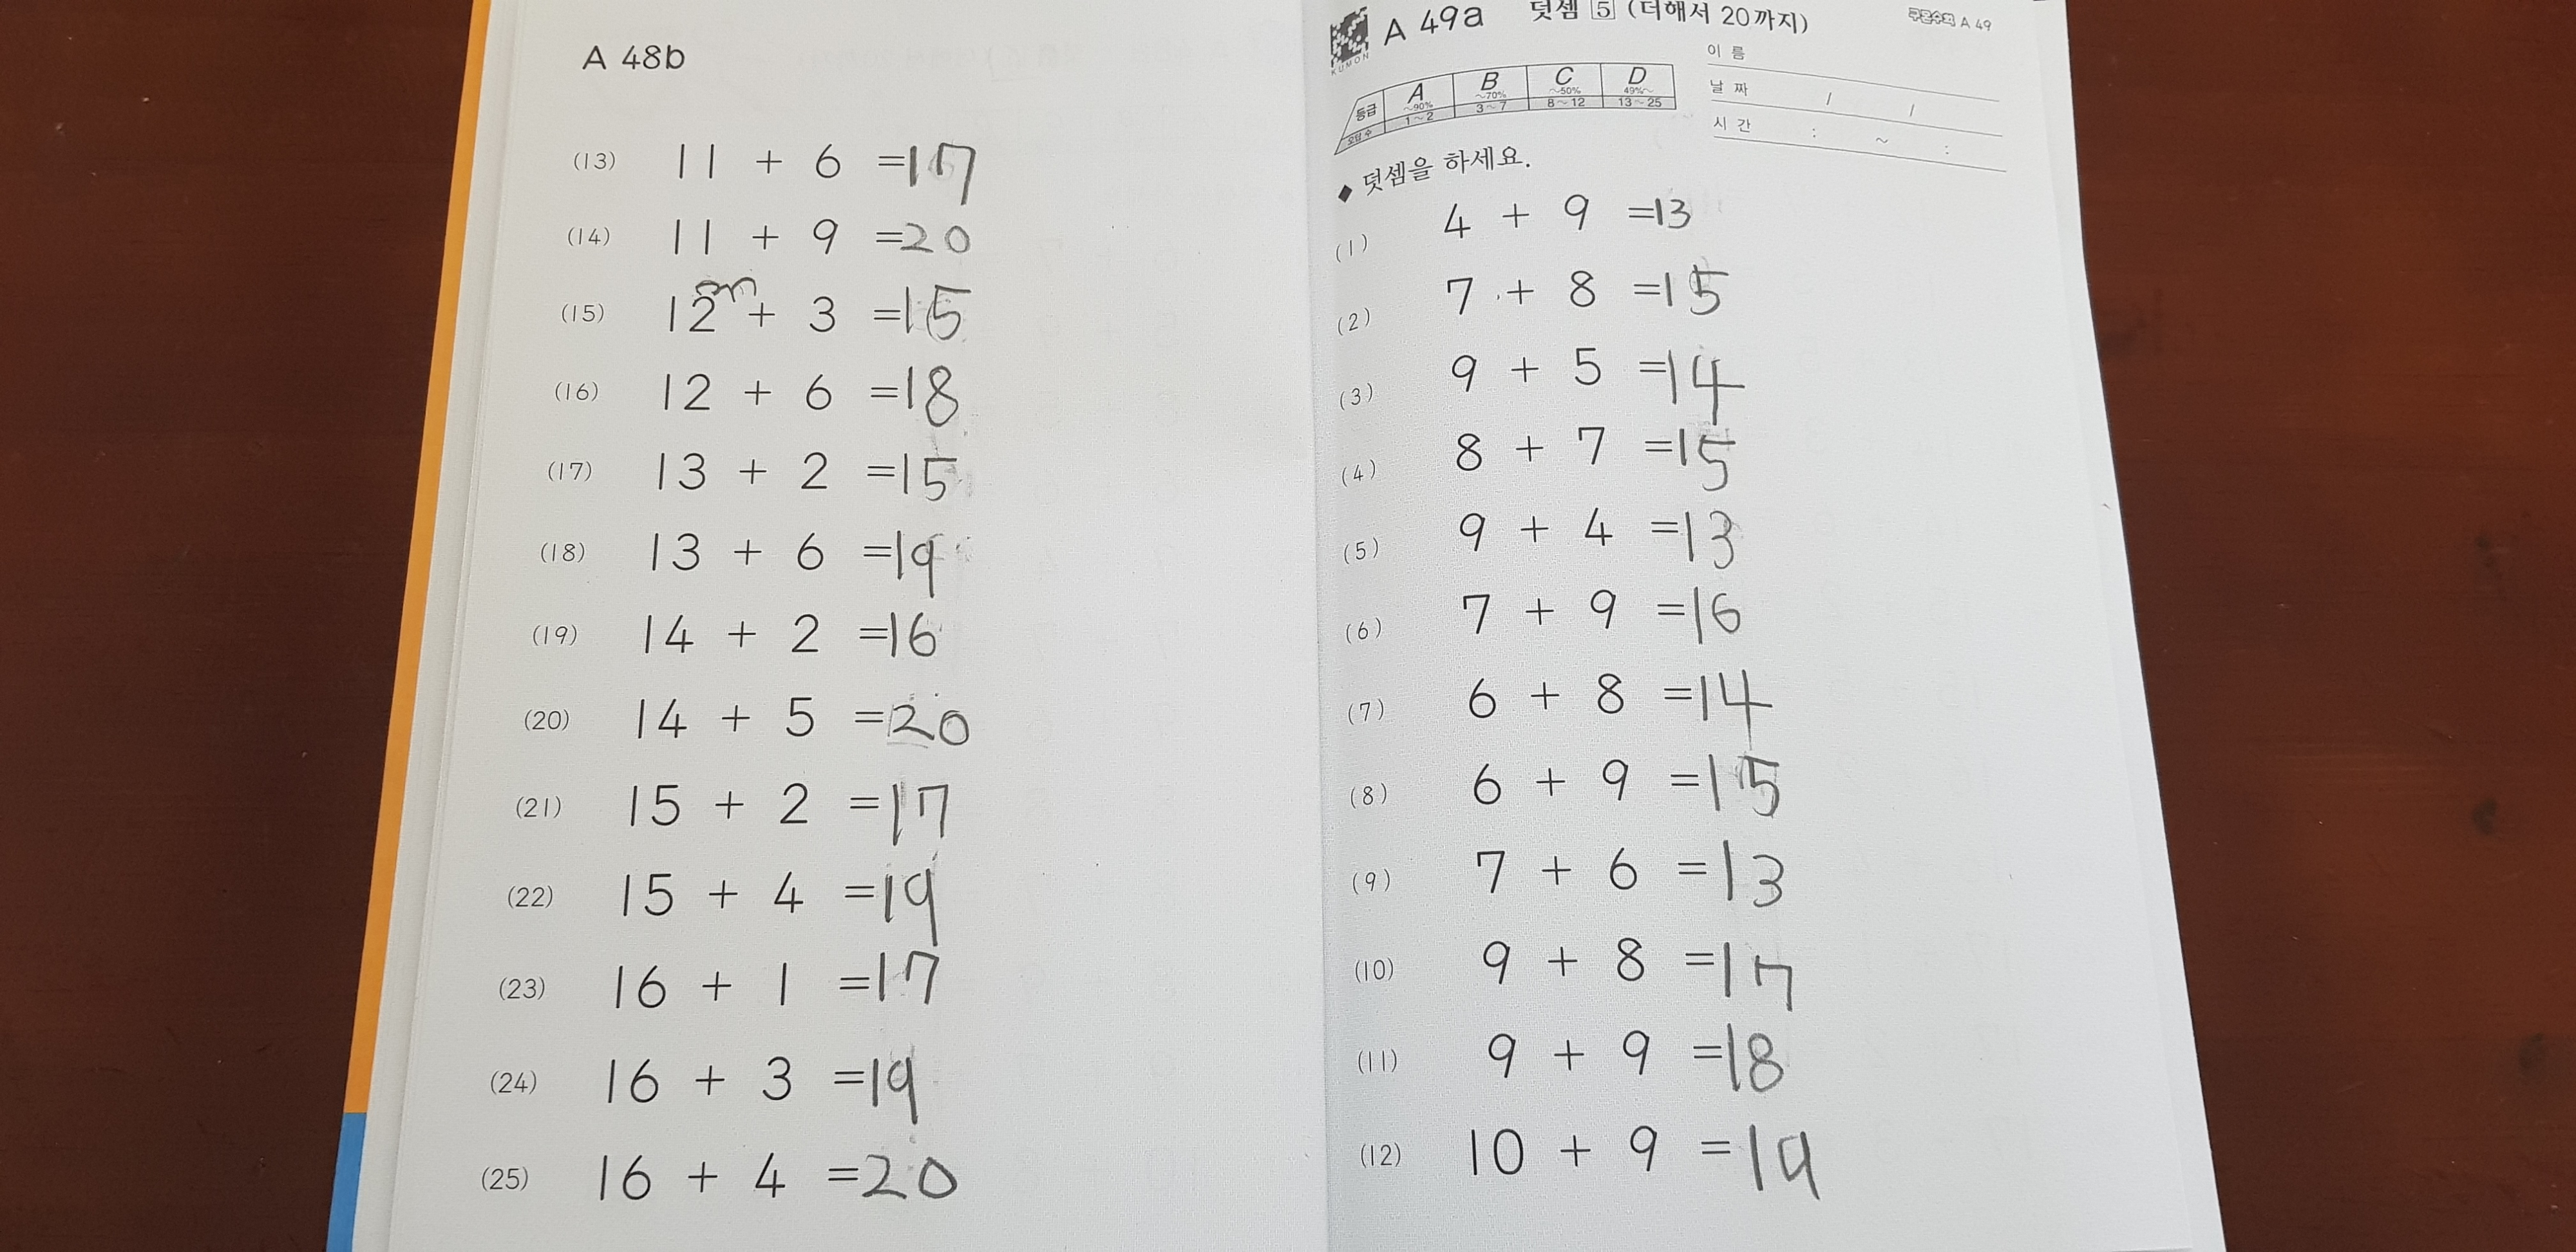 A 48b
(13) 11 + 6 =17
(14) 11 + 9 =20
(15) 12 + 3 =15
(16) 12 + 6 =18
(17) 13 + 2 =15
(18) 13 + 6 =19
(19) 14 + 2 =16
(20) 14 + 5 =20
(21) 15 + 2 =17
(22) 15 + 4 =19
(23) 16 + 1 =17
(24) 16 + 3 =19
(25) 16 + 4 =20
KUMON
A 49a 덧셈 5 (더해서 20까지)
쿠몬수학 A 49
이 름
날 짜 / /
시 간 : ~ :
등급 A ~90% B ~70% C ~50% D 49%~
오답수 1~2 3~7 8~12 13~25
◆ 덧셈을 하세요.
(1) 4 + 9 =13
(2) 7 + 8 =15
(3) 9 + 5 =14
(4) 8 + 7 =15
(5) 9 + 4 =13
(6) 7 + 9 =16
(7) 6 + 8 =14
(8) 6 + 9 =15
(9) 7 + 6 =13
(10) 9 + 8 =17
(11) 9 + 9 =18
(12) 10 + 9 =19